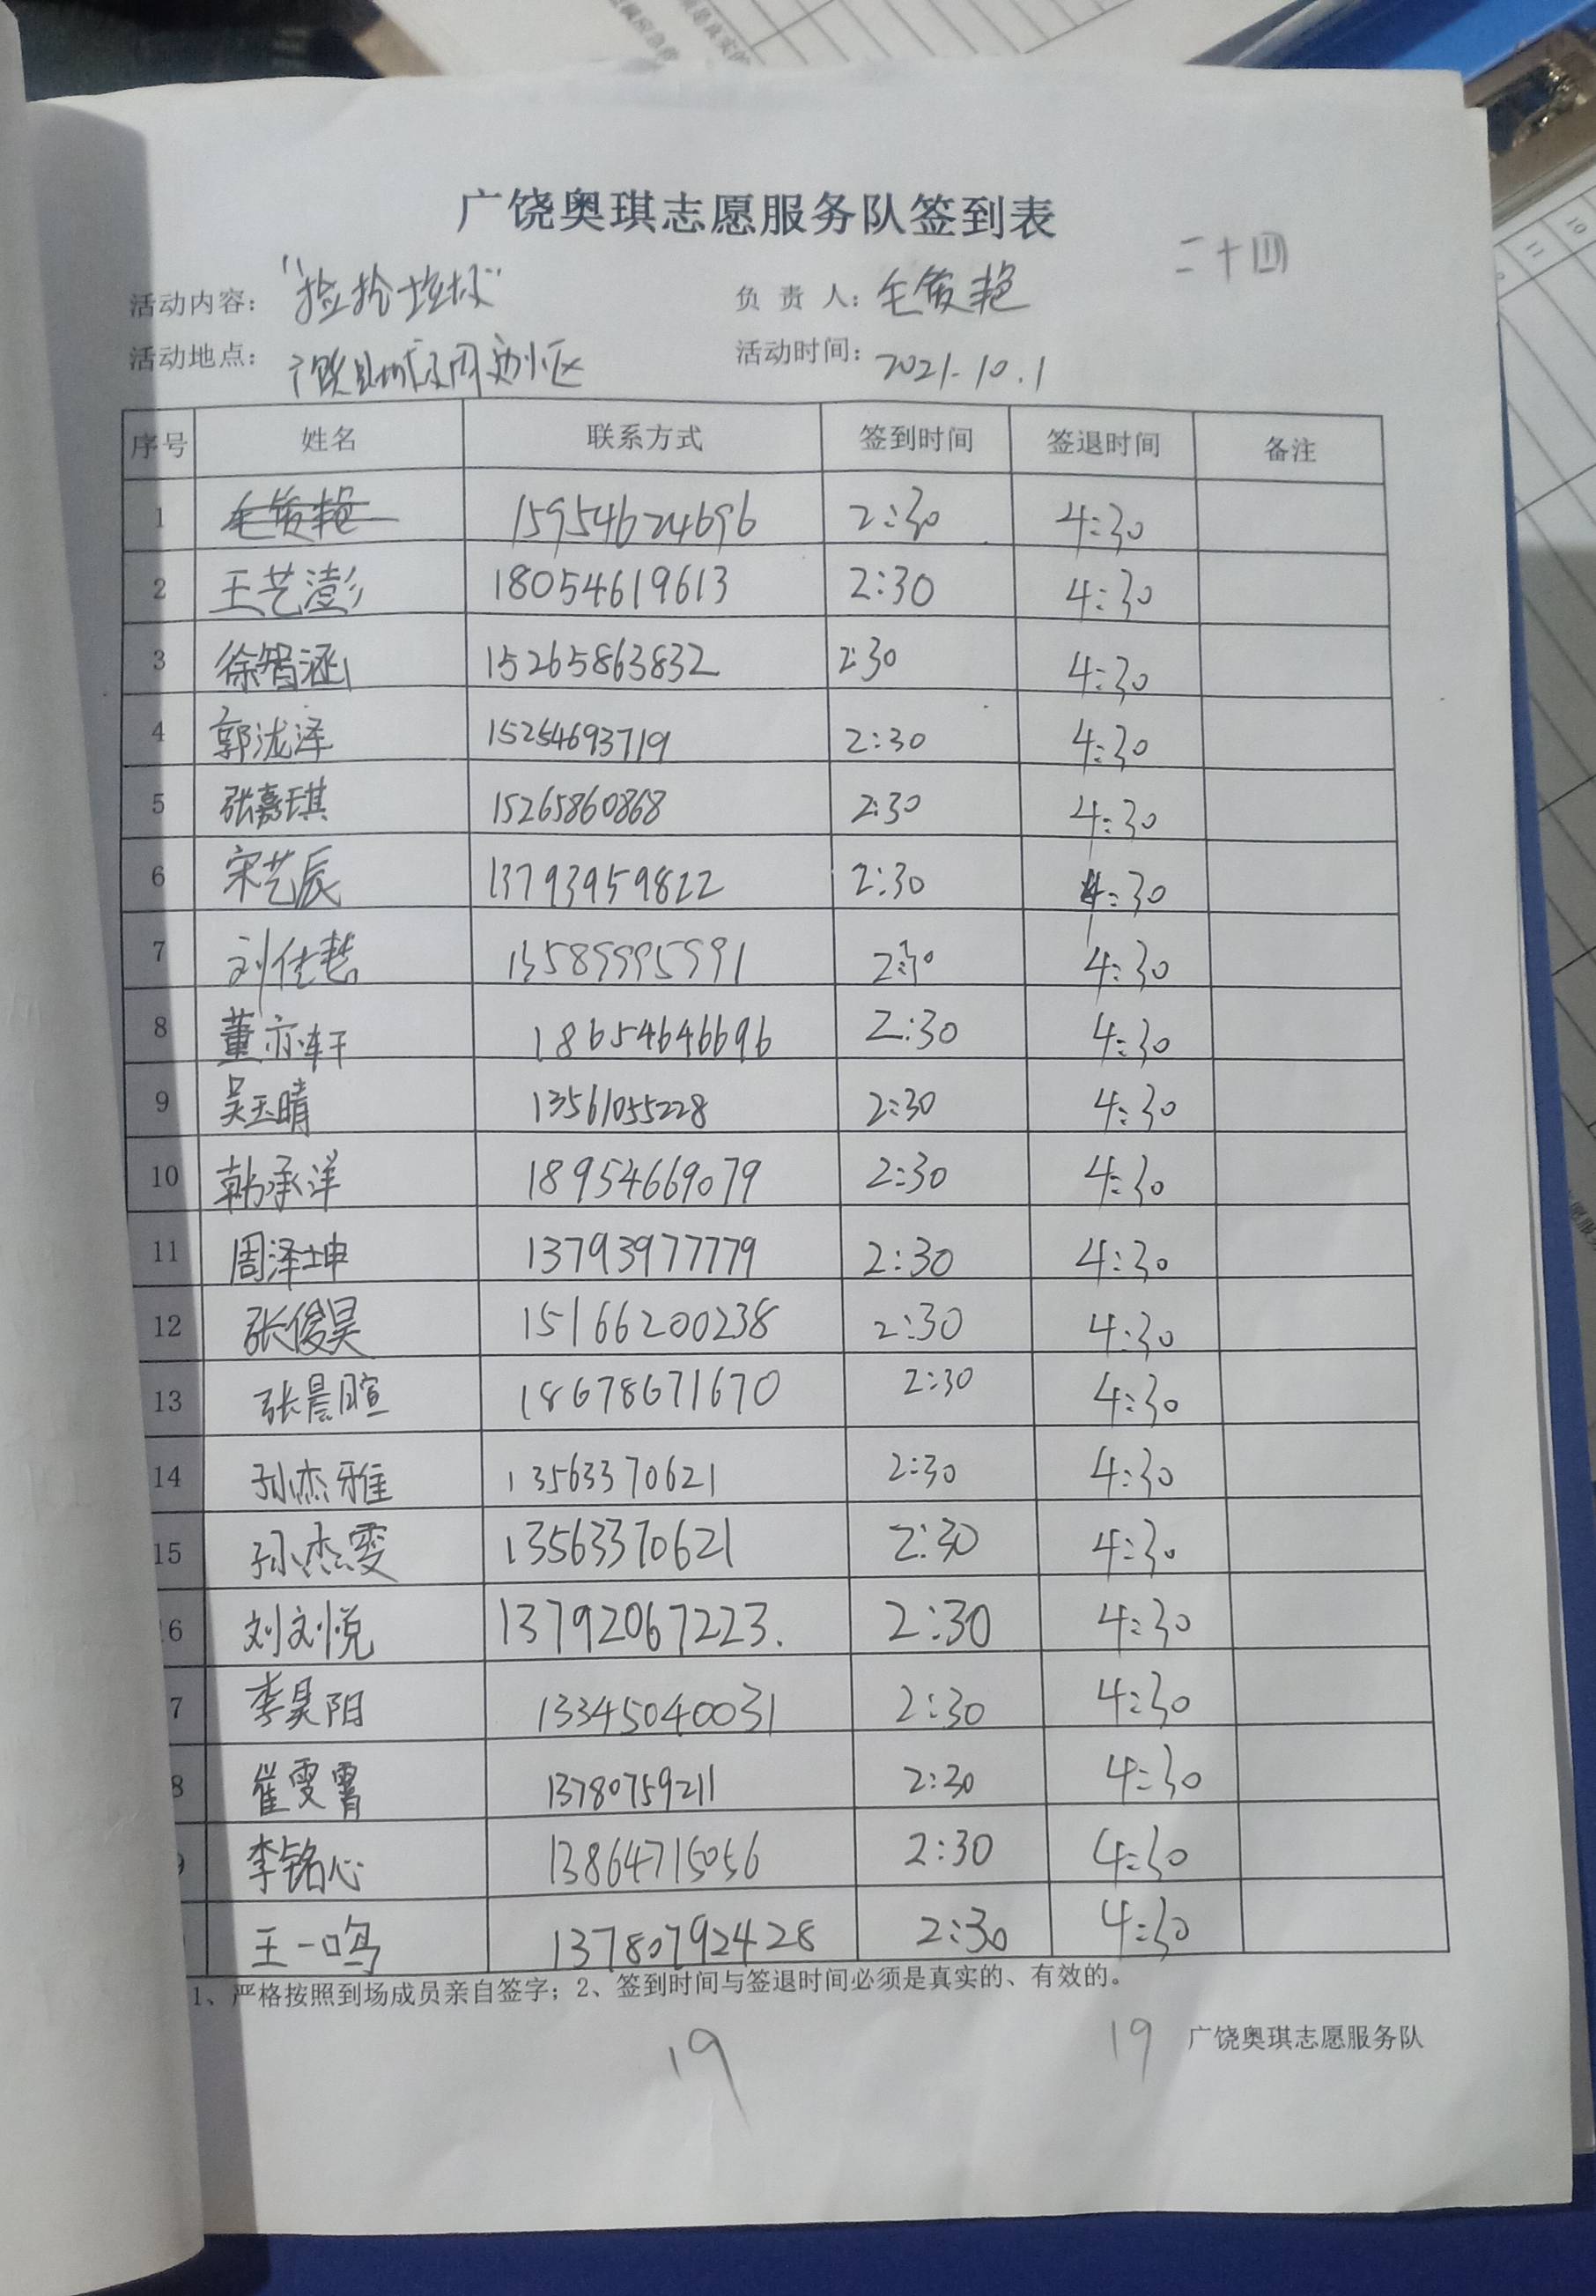 广饶奥琪志愿服务队签到表
二十四
活动内容： “捡拾垃圾” 负 责 人：
活动地点： 广饶县城及周边小区 活动时间： 2021.10.1
序号 姓名 联系方式 签到时间 签退时间 备注
1 15954624696 2:30 4:30
2 王艺澎 18054619613 2:30 4:30
3 徐智涵 15265863832 2:30 4:30
4 郭泷泽 15254693719 2:30 4:30
5 张嘉琪 15265860868 2:30 4:30
6 宋艺辰 13793959822 2:30 4:30
7 刘佳慧 13589995991 2:30 4:30
8 董亦轩 18654646696 2:30 4:30
9 吴玉晴 13561055228 2:30 4:30
10 韩承洋 18954669079 2:30 4:30
11 周泽坤 13793977779 2:30 4:30
12 张俊昊 15166200238 2:30 4:30
13 张晨暄 18678671670 2:30 4:30
14 孙杰雅 13563370621 2:30 4:30
15 孙杰雯 13563370621 2:30 4:30
6 刘刘悦 13792067223. 2:30 4:30
7 李昊阳 13345040031 2:30 4:30
8 崔雯霄 13780759211 2:30 4:30
9 李铭心 13864715056 2:30 4:30
王一鸣 13780792428 2:30 4:30
1、严格按照到场成员亲自签字；2、签到时间与签退时间必须是真实的、有效的。
19 19 广饶奥琪志愿服务队